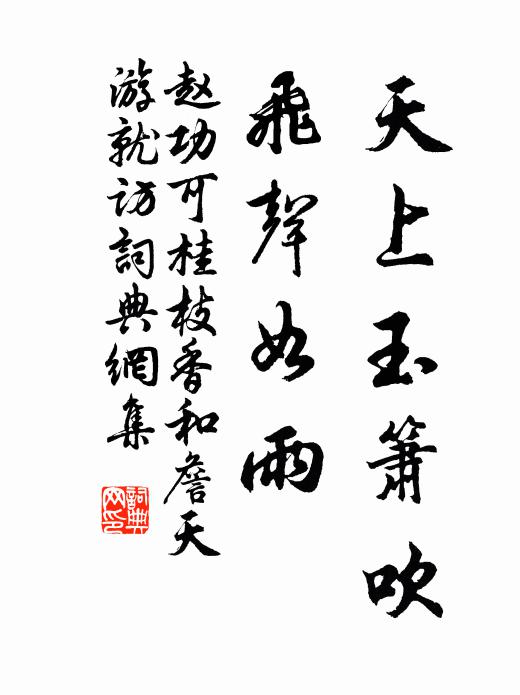 天上玉箫吹
飛聲如雨
赵功可桂枝香和詹天
游就访詞典網集
詞典
网印